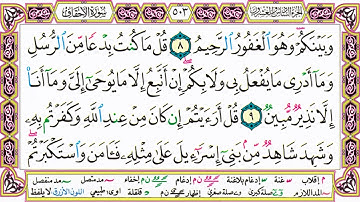 سورة الأحقاف ٥٠٣ الجزء السادس والعشرون
وَبَيْنَكُمْ ۖ وَهُوَ الْغَفُورُ الرَّحِيمُ ٨ قُلْ مَا كُنتُ بِدْعًا مِّنَ الرُّسُلِ
وَمَا أَدْرِي مَا يُفْعَلُ بِي وَلَا بِكُمْ ۖ إِنْ أَتَّبِعُ إِلَّا مَا يُوحَىٰ إِلَيَّ وَمَا أَنَا
إِلَّا نَذِيرٌ مُّبِينٌ ٩ قُلْ أَرَءَيْتُمْ إِن كَانَ مِنْ عِندِ اللَّهِ وَكَفَرْتُم بِهِ
وَشَهِدَ شَاهِدٌ مِّن بَنِي إِسْرَٰٓءِيلَ عَلَىٰ مِثْلِهِ فَـَٔامَنَ وَاسْتَكْبَرْتُمْ